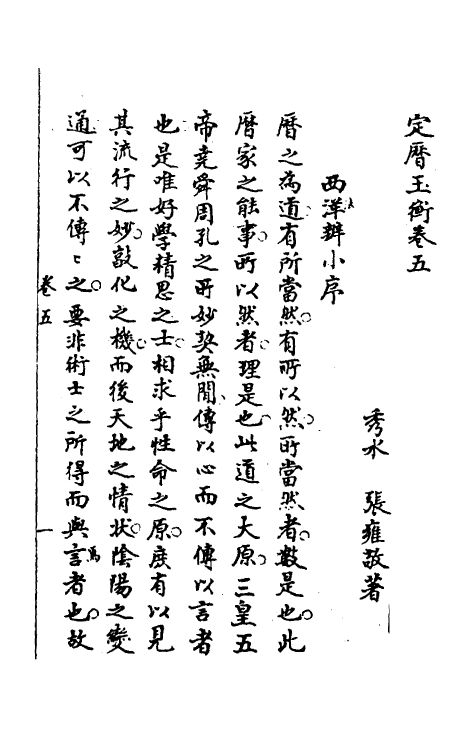 定曆玉衡卷五
秀水 張雍敬著
西洋辨小序
曆之為道有所當然有所以然所當然者數是也此
曆家之能事所以然者理是也此道之大原三皇五
帝堯舜周孔之所妙契無間傳以心而不傳以言者
也是唯好學精思之士相求乎性命之原庶有以見
其流行之妙敦化之機而後天地之情狀陰陽之變
通可以不傳〻之要非術士之所得而與言焉者也故
卷五
一